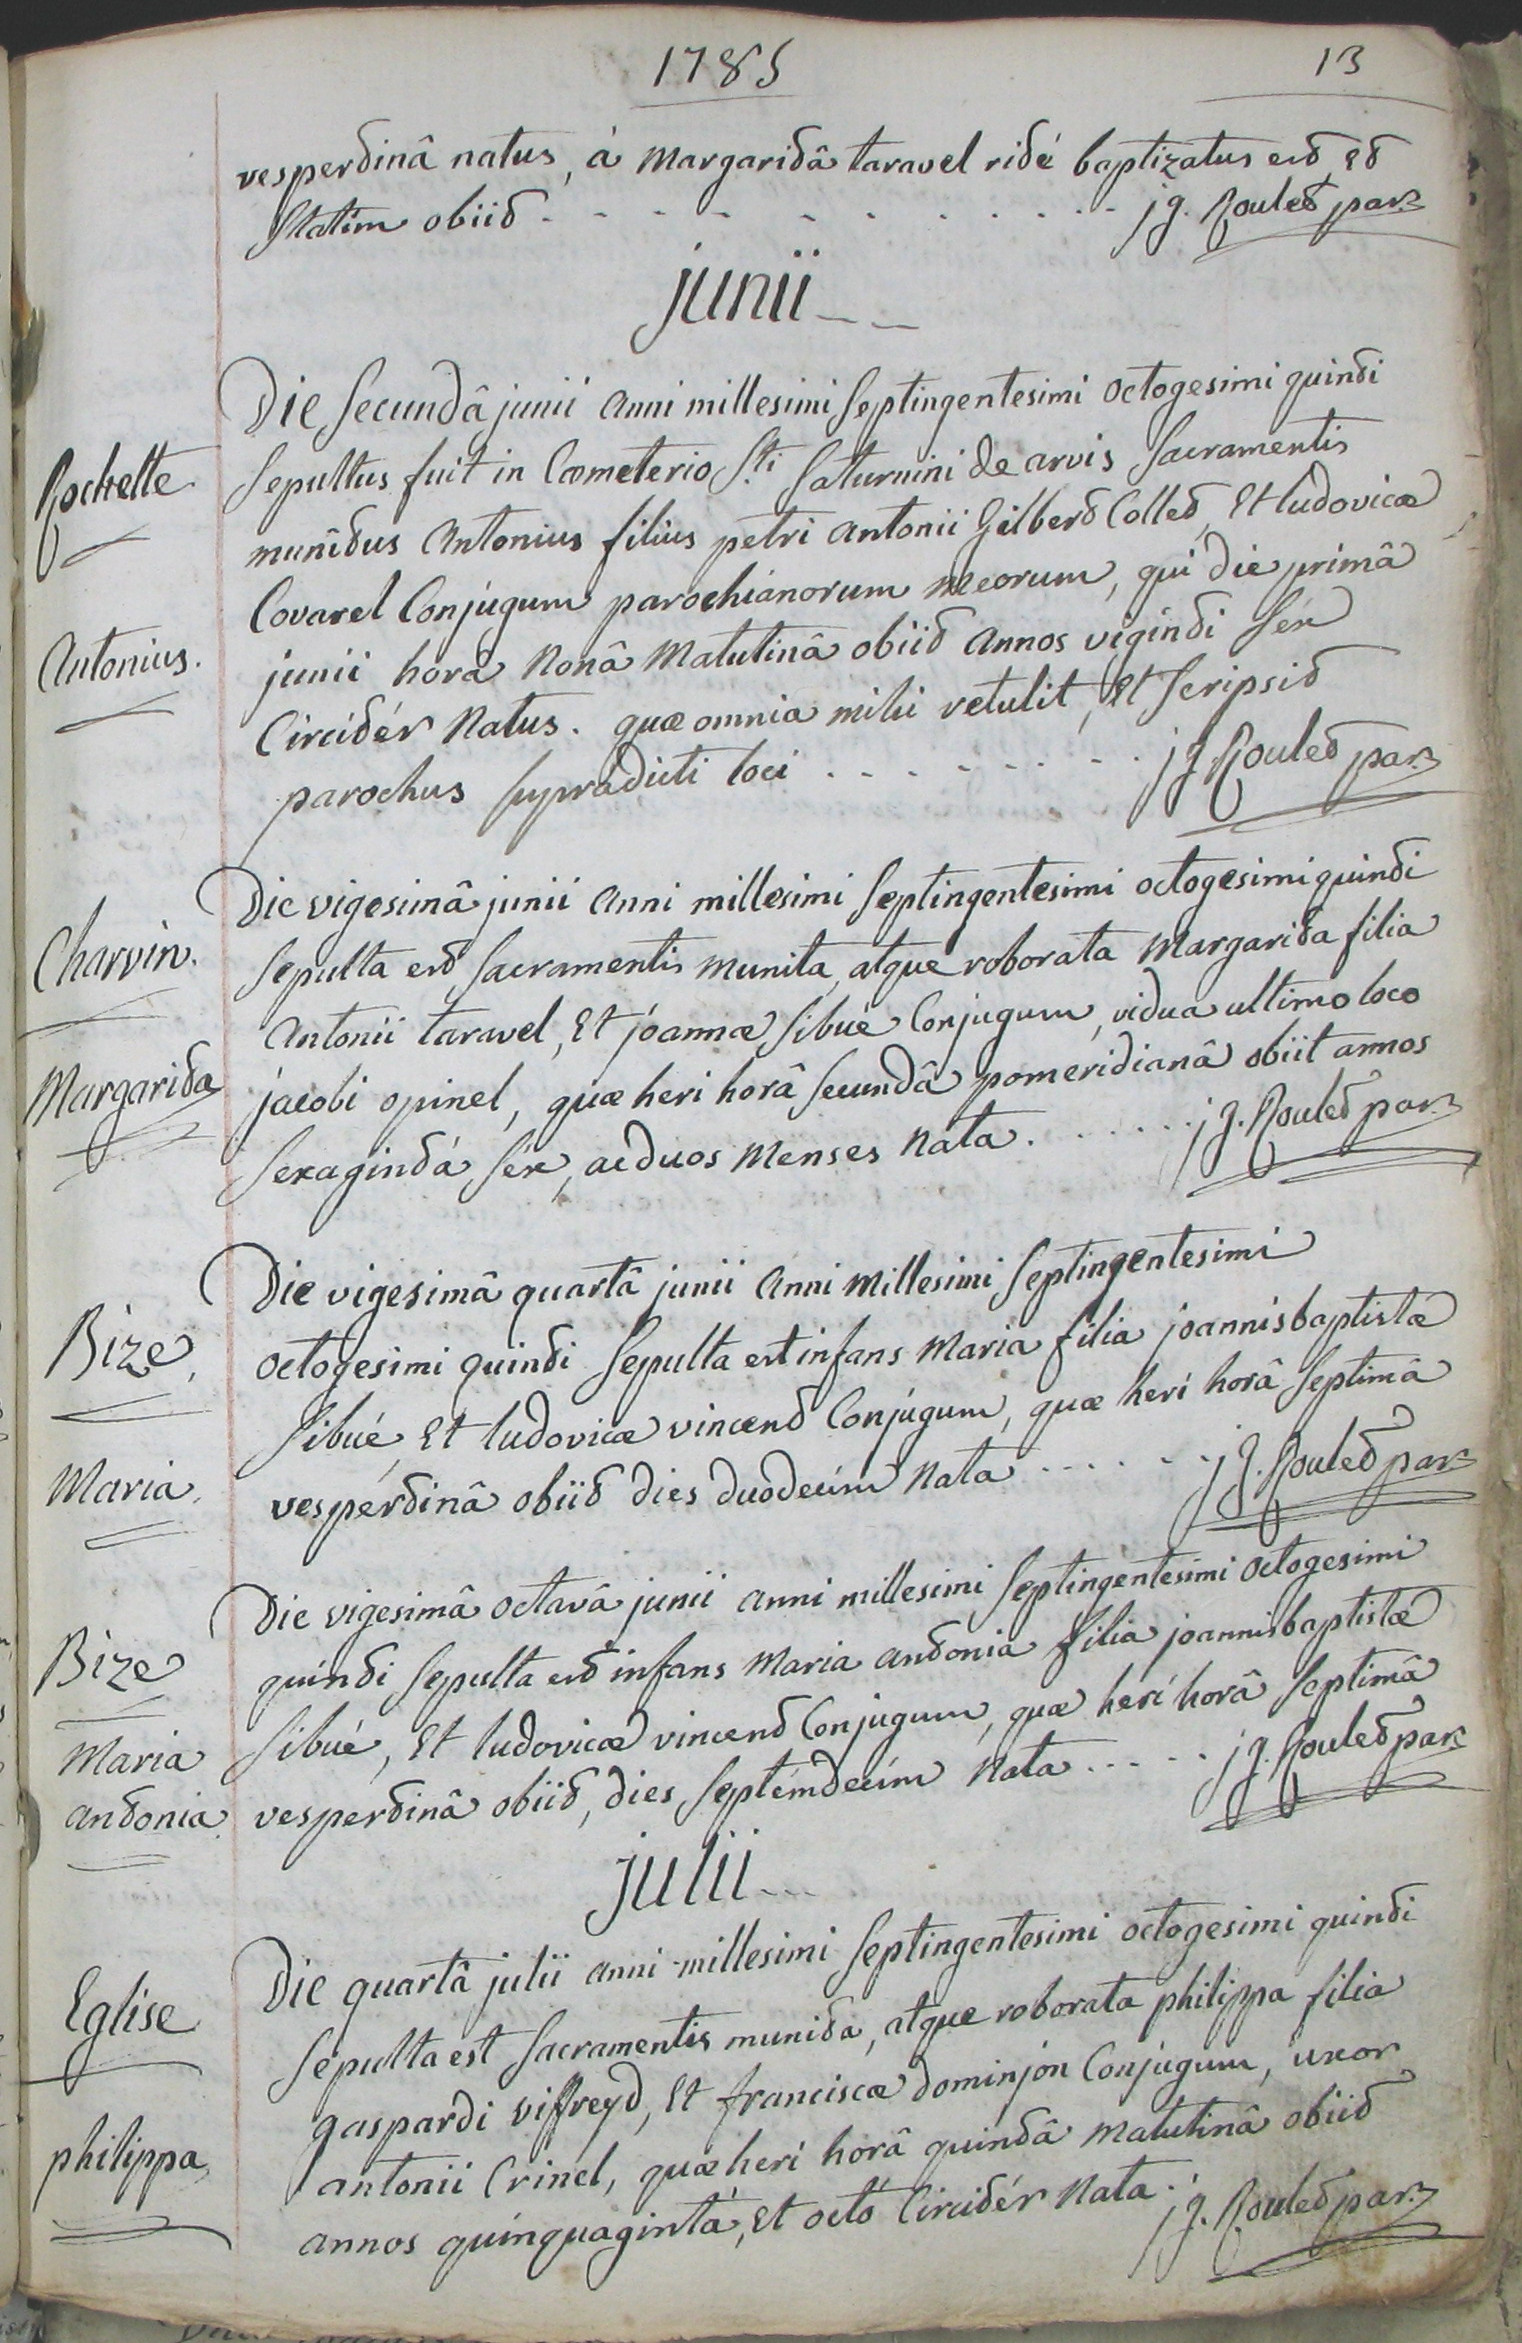 1785
13
vespertinâ natus, à Margaritâ taravel ritè baptizatus est, Et
statim obiit - - - - - - - - - - - jg. Roulet par.
junii - -
Die secundâ junii anni millesimi septingentesimi octogesimi quinti
Rochette
sepultus fuit in Coemeterio Sti Saturnini de arvis sacramentis
munitus antonius filius petri antonii Gilbert Collet, Et ludovicæ
Covarel Conjugum parochianorum meorum, qui die primâ
Antonius.
junii horâ nonâ matutinâ obiit annos viginti séx
Circitér natus. quæ omnia mihi retulit, Et scripsit
parochus supradicti loci - - - - - - - - jg Roulet par.
Die vigesimâ junii anni millesimi septingentesimi octogesimi quinti
Charvin.
sepulta est sacramentis munita, atque roborata Margarita filia
antonii taravel, Et joannæ sibué Conjugum, vidua ultimo loco
Margarita
jacobi opinel, quæ heri horâ secundâ pomeridianâ obiit annos
sexagintá séx, ac duos menses nata. - - - - - jg. Roulet par.
Die vigesimâ quartâ junii anni millesimi septingentesimi
Bize,
octogesimi quinti sepulta est infans Maria filia joannis baptistæ
sibué, Et ludovicæ vincent Conjugum, quæ heri horâ septimâ
Maria.
vespértinâ obiit dies duodecím nata - - - - - - jg. Roulet par.
Die vigesimâ octavâ junii anni millesimi septingentesimi octogesimi
Bize
quinti sepulta est infans Maria antonia filia joannis baptistæ
sibué, Et ludovicæ vincent Conjugum, quæ heri horâ septimâ
Maria
antonia
vespertinâ obiit, dies septémdecím nata - - - - - jg. Roulet par.
julii - - -
Die quartâ julii anni millesimi septingentesimi octogesimi quinti
Eglise
sépulta est sacramentis munita, atque roborata philippa filia
gaspardi viffreyd, Et franciscæ dominjon Conjugum, uxor
philippa
antonii Crinel, quæ heri horâ quintâ matutinâ obiit
annos quinquagintá, Et octo Circitér nata. jg. Roulet par.